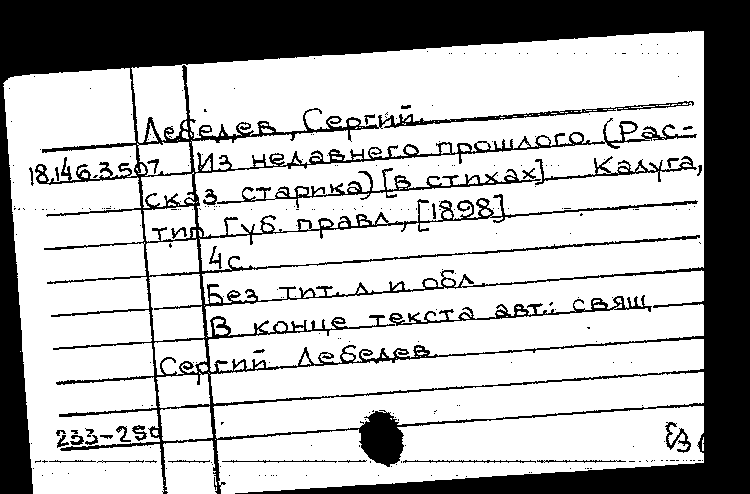 Лебедев, Сергий.
18.146.3.507. Из недавнего прошлого. (Рас-
сказ старика) [в стихах]. Калуга,
тип. Губ. правл., [1898].
4с.
Без тит. л. и обл.
В конце текста авт.: свящ.
Сергий Лебедев.